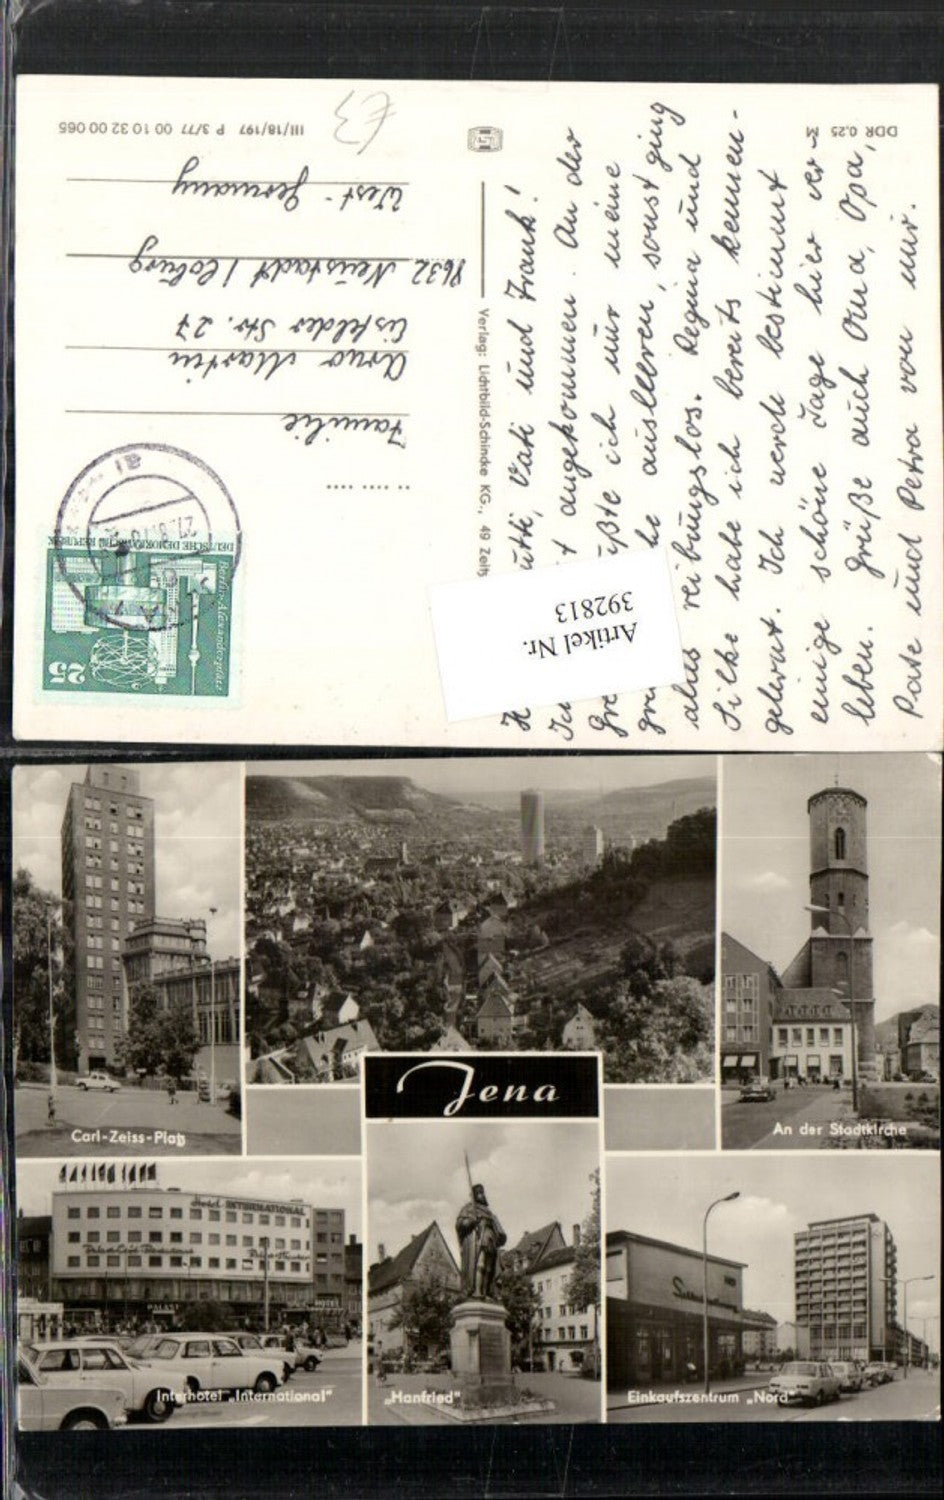 DDR 0.25 M
III/18/197 P 3/77 00 10 32 00 065
Mutti, Vati und Frank!
angekommen. An der
ich nur meine
ausleeren, sonst ging
alles reibungslos. Regina und
Silke habe ich bereits kennen-
gelernt. Ich werde bestimmt
einige schöne Tage hier ver-
leben. Grüße auch Oma, Opa,
Pate und Petra von mir.
Verlag: Lichtbild-Schincke KG., 49 Zeitz
Artikel Nr.
392813
25
Berlin, Alexanderplatz
DEUTSCHE DEMOKRATISCHE REPUBLIK
Familie
Arno Martin
Eisfelder Str. 27
8632 Neustadt / Coburg
West-Germany
£3
Carl-Zeiss-Platz
Jena
An der Stadtkirche
Hotel INTERNATIONAL
PALAST
HOTEL
Interhotel „International"
„Hanfried"
Einkaufszentrum „Nord"